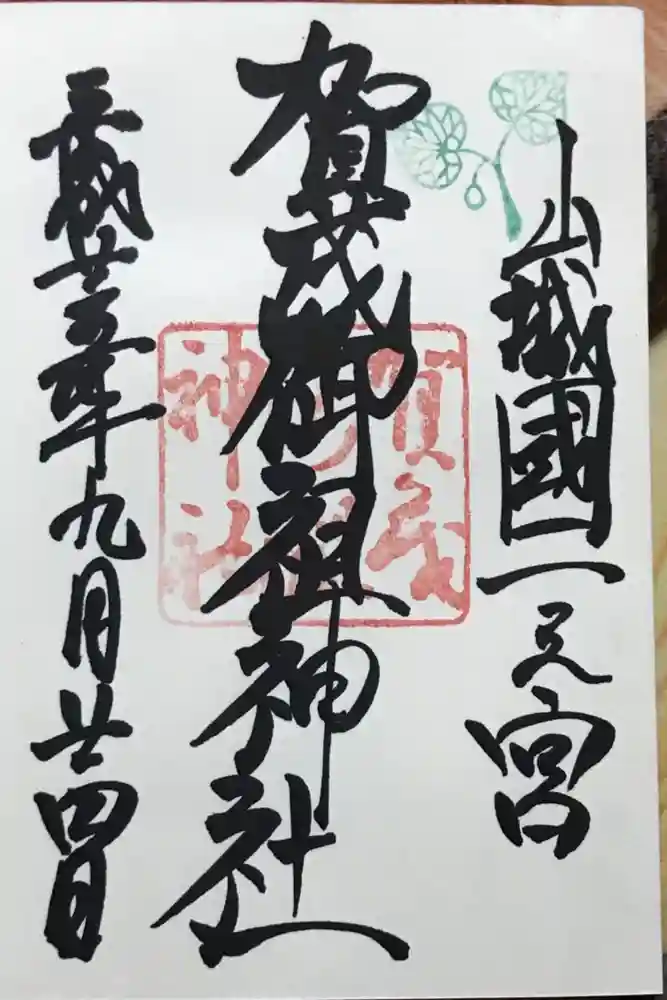 山城國一之宮
賀茂御祖神社
平成廿五年九月廿四日
賀茂
神社